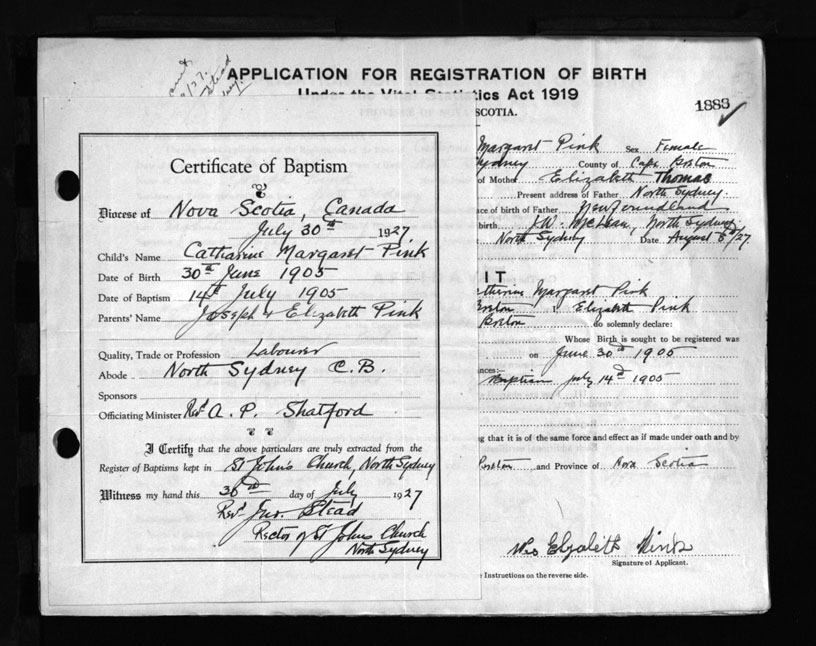 APPLICATION FOR REGISTRATION OF BIRTH
Under the Vital Statistics Act 1919
SCOTIA.
1883
Certificate of Baptism
Diocese of Nova Scotia, Canada
July 30th 1927
Child's Name Catharine Margaret Pink
Date of Birth 30th June 1905
Date of Baptism 14th July 1905
Parents' Name Joseph & Elizabeth Pink
Quality, Trade or Profession Labourer
Abode North Sydney C.B.
Sponsors
Officiating Minister Revd A. P. Shatford
I Certify that the above particulars are truly extracted from the
Register of Baptisms kept in St John's Church, North Sydney
Witness my hand this 30th day of July 1927
Revd Jno. Stead
Rector of St Johns Church
North Sydney
Margaret Pink Sex Female
Sydney County of Cape Breton
of Mother Elizabeth Thomas
Present address of Father North Sydney
ce of birth of Father Newfoundland
birth J.W. McLean, North Sydney
North Sydney Date August 5th/27.
IT
atherine Margaret Pink
Breton Elizabeth Pink
Breton do solemnly declare:
Whose Birth is sought to be registered was
on June 30th 1905
nces:—
Baptism July 14th 1905
ng that it is of the same force and effect as if made under oath and by
Breton and Province of Nova Scotia
Mrs Elizabeth Pink
Signature of Applicant.
e Instructions on the reverse side.